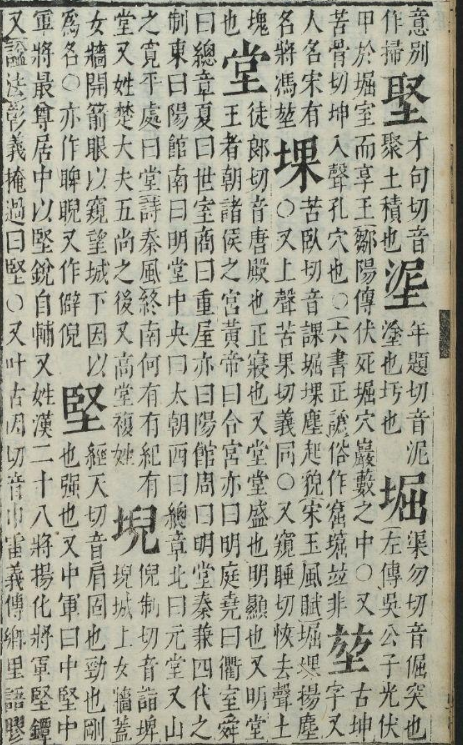 意別
作掃
埾
才句切音
聚土積也
埿
年題切音泥
塗也圬也
堀
渠勿切音倔突也
左傳吳公子光伏
甲於堀室而享王鄒陽傳伏死堀穴巖藪之中〇又
苦骨切坤入聲孔穴也〇六書正譌俗作窟竝非
堃
古坤
字又
人名宋有
名將馮堃
堁
苦臥切音課堀堁塵起貌宋玉風賦堀堁揚塵
〇又上聲苦果切義同〇又窺睡切恢去聲土
塊
也
堂
徒郎切音唐殿也正寢也又堂堂盛也明顯也又明堂
王者朝諸侯之宮黃帝曰合宮亦曰明庭堯曰衢室舜
曰總章夏曰世室商曰重屋亦曰陽館周曰明堂秦兼四代之
制東曰陽館南曰明堂中央曰太朝西曰總章北曰元堂又山
之寬平處曰堂詩秦風終南何有有紀有
堂又姓楚大夫五尚之後又高堂複姓
堄
倪制切音詣埤
堄城上女牆蓋
女牆開箭眼以窺望城下因以
爲名〇亦作睥睨又作僻倪
堅
經天切音肩固也勁也剛
也强也又中軍曰中堅中
軍將最尊居中以堅銳自輔又姓漢二十八將揚化將軍堅鐔
又謚法彰義掩過曰堅〇又叶古因切音巾雷義傳鄉里語膠